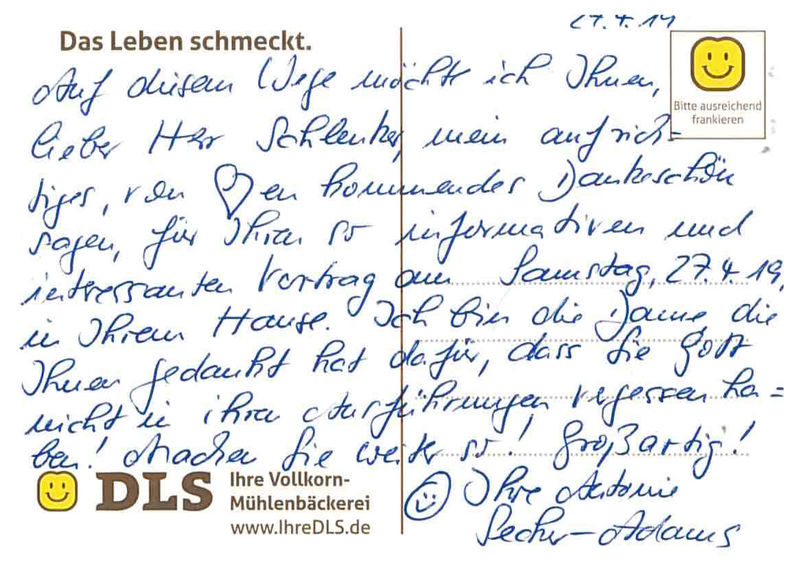 27.4.19
Das Leben schmeckt.
Bitte ausreichend
frankieren
Auf diesem Wege möchte ich Ihnen,
lieber Herr Schlenker, mein aufrich=
tiges, von ♡en kommendes Dankeschön
sagen, für Ihren so informativen und
interessanten Vortrag am Samstag, 27.4.19,
in Ihrem Hause. Ich bin die Dame, die
Ihnen gedankt hat dafür, dass Sie Gott
nicht in ihren Ausführungen vegessen ha=
ben! Machen Sie weiter so! Großartig!
☺ Ihre Antonie
-Adams
DLS
Ihre Vollkorn-
Mühlenbäckerei
www.IhreDLS.de